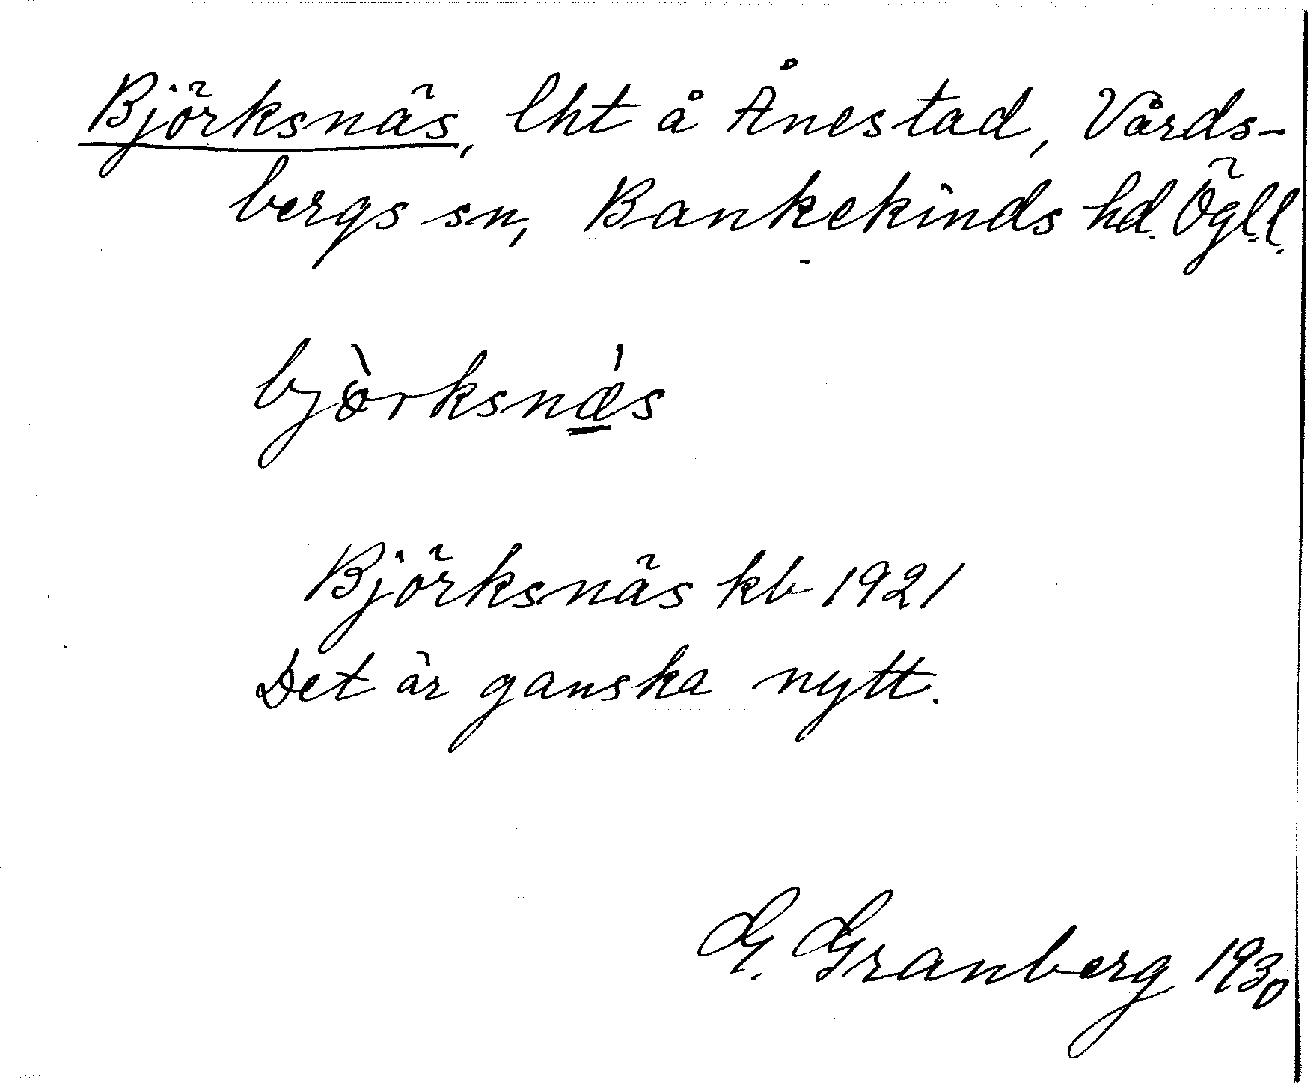 Björksnäs, lht å Ånestad, Vårds-
bergs sn, Bankekinds hd. Ögl.l.
bjòrksnǽs
Björksnäs kb 1921
Det är ganska nytt.
G. Granberg 1930